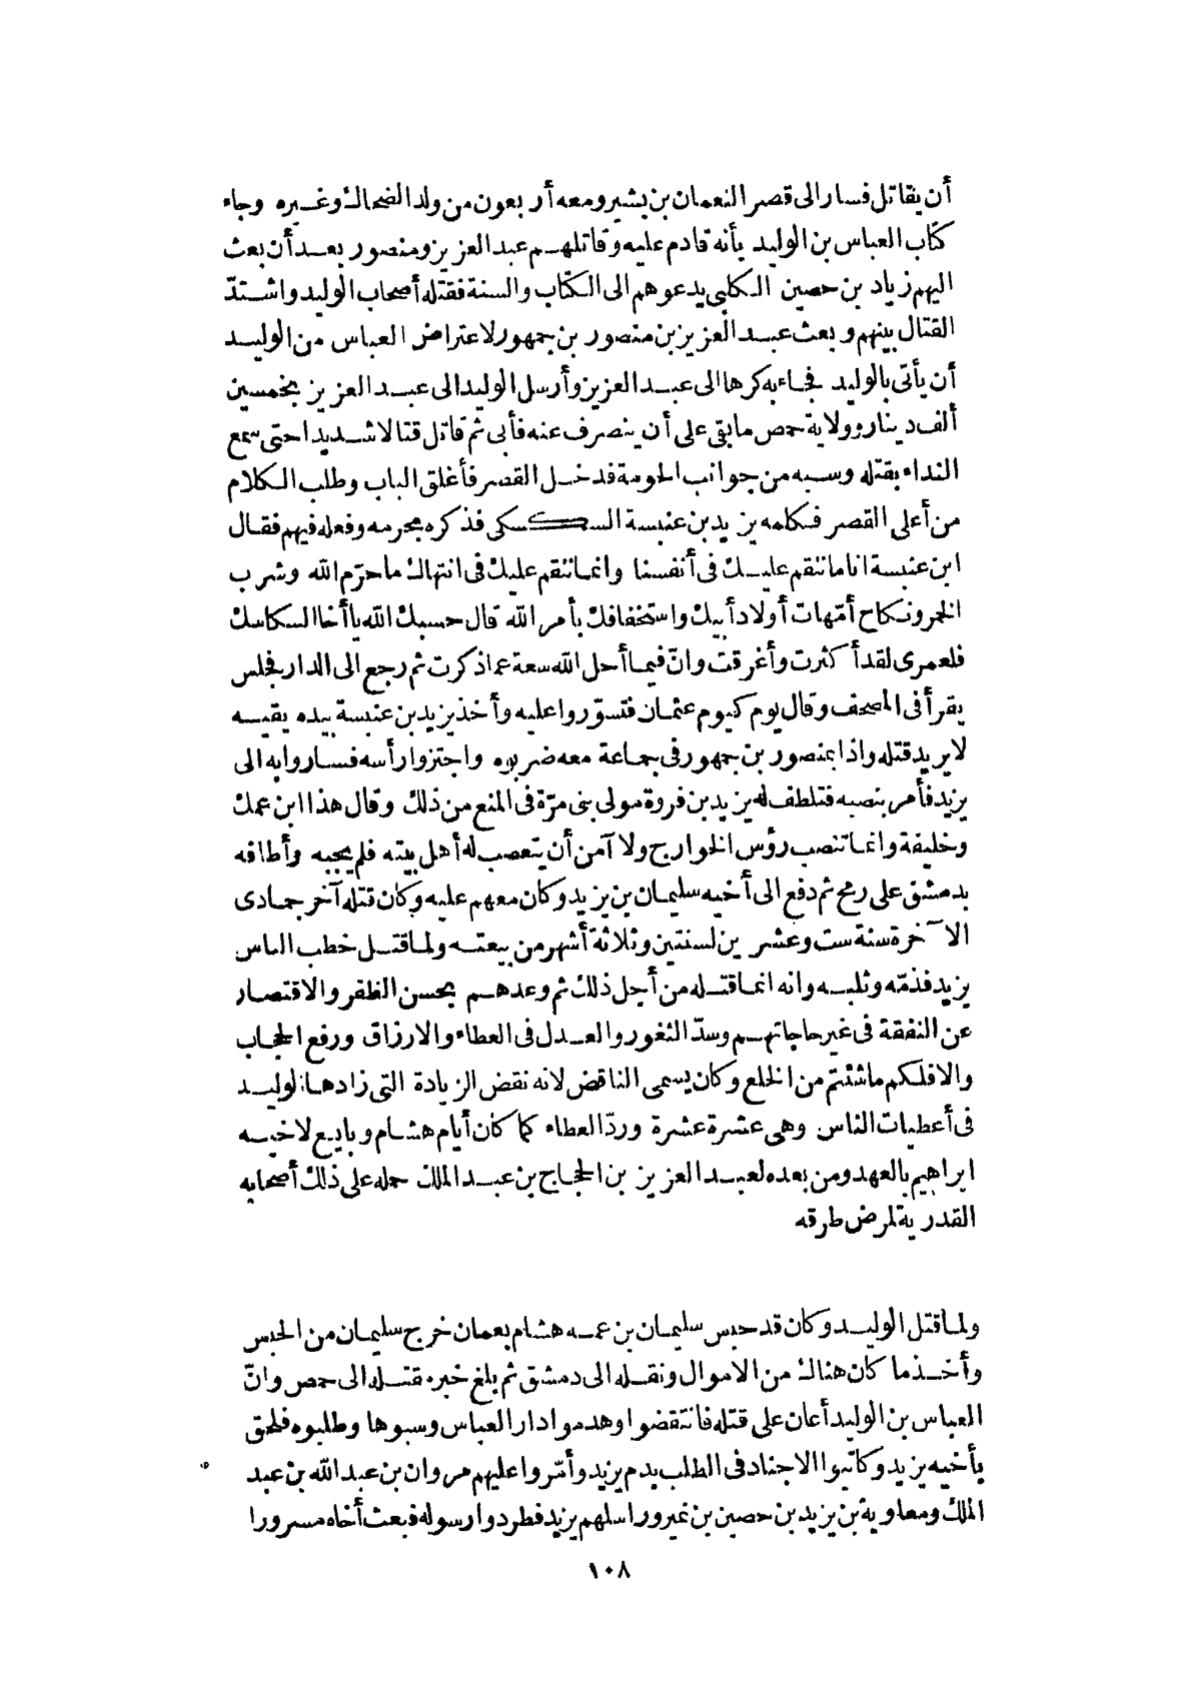 أن يقاتل فسار الى قصر النعمان بن بشير ومعه أربعون من ولد الضحاك وغيره وجاء
كتاب العباس بن الوليد بأنه قادم عليه وقاتلهم عبد العزيز ومنصور بعد أن بعث
اليهم زياد بن حصين الكلبى يدعوهم الى الكتاب والسنة فقتله أصحاب الوليد واشتدّ
القتال بينهم وبعث عبد العزيز بن منصور بن جمهور لاعتراض العباس من الوليد
أن يأتى بالوليد فجاء به كرها الى عبد العزيز وأرسل الوليد الى عبد العزيز بخمسين
ألف دينار وولاية حمص ما بقى على أن ينصرف عنه فأبى ثم قاتل قتالا شديدا حتى سمع
النداء بقتله وسبه من جوانب الحومة فدخل القصر فأغلق الباب وطلب الكلام
من أعلى القصر فكلمه يزيد بن عنبسة السكسكى فذكره بحرمه وفعله فيهم فقال
ابن عنبسة انا ما ننقم عليك فى أنفسنا وانما ننقم عليك فى انتهاك ما حرّم الله وشرب
الخمر ونكاح أمّهات أولاد أبيك واستخفافك بأمر الله قال حسبك الله يا أخا السكاسك
فلعمرى لقد أكثرت وأغرقت وانّ فيما أحل الله سعة عما ذكرت ثم رجع الى الدار فجلس
يقرأ فى المصحف وقال يوم كيوم عثمان فتسوّروا عليه وأخذ يزيد بن عنبسة بيده يقيه
لا يريد قتله واذا بمنصور بن جمهور فى جماعة معه ضربوه واجتزوا رأسه فساروا به الى
يزيد فأمر بنصبه فتلطف له يزيد بن فروة مولى بنى مرّة فى المنع من ذلك وقال هذا ابن عمك
وخليفة وانما تنصب رؤس الخوارج ولا آمن أن يتعصب له أهل بيته فلم يجبه وأطافه
بدمشق على رمح ثم دفع الى أخيه سليمان بن يزيد وكان معهم عليه وكان قتله آخر جمادى
الآخرة سنة ست وعشرين لسنتين وثلاثة أشهر من بيعته ولما قتل خطب الناس
يزيد فذمّه وثلبه وانه انما قتله من أجل ذلك ثم وعدهم بحسن الظفر والاقتصار
عن النفقة فى غير حاجاتهم وسدّ الثغور والعدل فى العطاء والارزاق ورفع الحجاب
والا فلكم ما شئتم من الخلع وكان يسمى الناقض لانه نقض الزيادة التى زادها الوليد
فى أعطيات الناس وهى عشرة عشرة وردّ العطاء كما كان أيام هشام وبايع لاخيه
ابراهيم بالعهد ومن بعده لعبد العزيز بن الحجاج بن عبد الملك حمله على ذلك أصحابه
القدرية لمرض طرقه
ولما قتل الوليد وكان قد حبس سليمان بن عمه هشام بعمان خرج سليمان من الحبس
وأخذ ما كان هناك من الاموال ونقله الى دمشق ثم بلغ خبر قتله الى حمص وانّ
العباس بن الوليد أعان على قتله فانتقضوا وهدموا دار العباس وسبوها وطلبوه فلحق
بأخيه يزيد وكاتبوا الاجناد فى الطلب بدم يزيد وأمّروا عليهم مروان بن عبد الله بن عبد
الملك ومعاوية بن يزيد بن حصين بن نمير وراسلهم يزيد فطردوا رسوله فبعث أخاه مسرورا
١٠٨